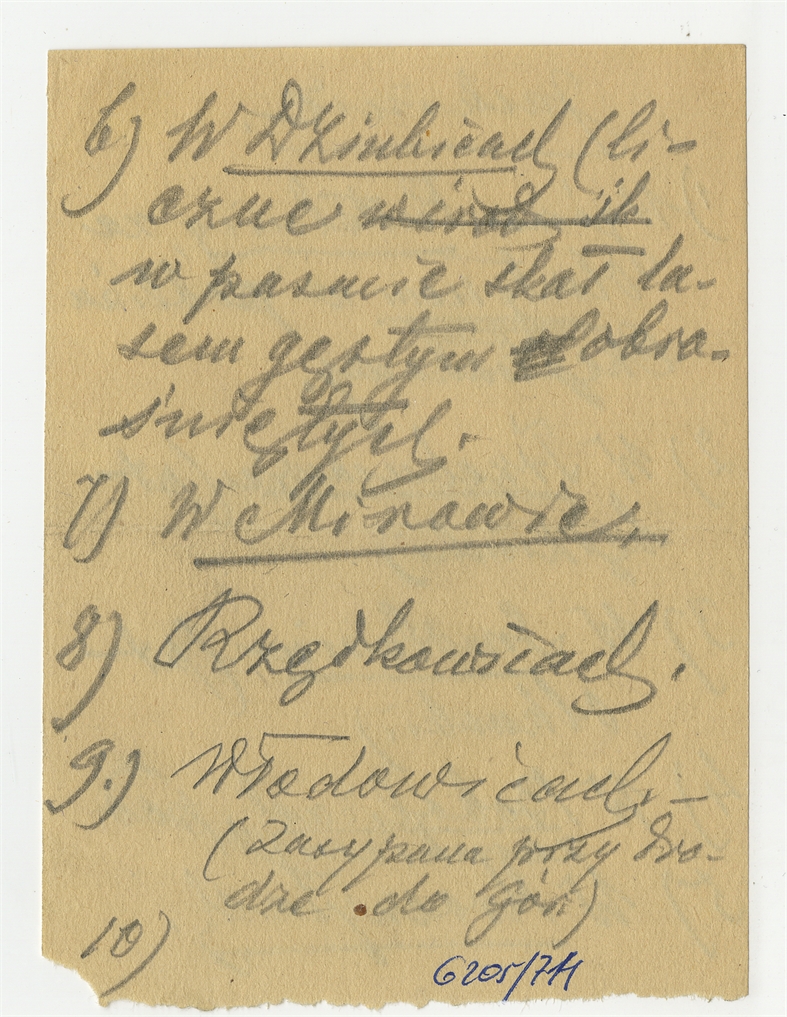 6) W Dziubicach (li-
czne wirch ik
w pasmie skał la-
sem gęstym obro-
śniętych.
7) W Mirowie.
8) Rzędkowicach.
9.) Włodowicach. –
(Zasypana przy dro-
dze do gór)
10)
6205/711